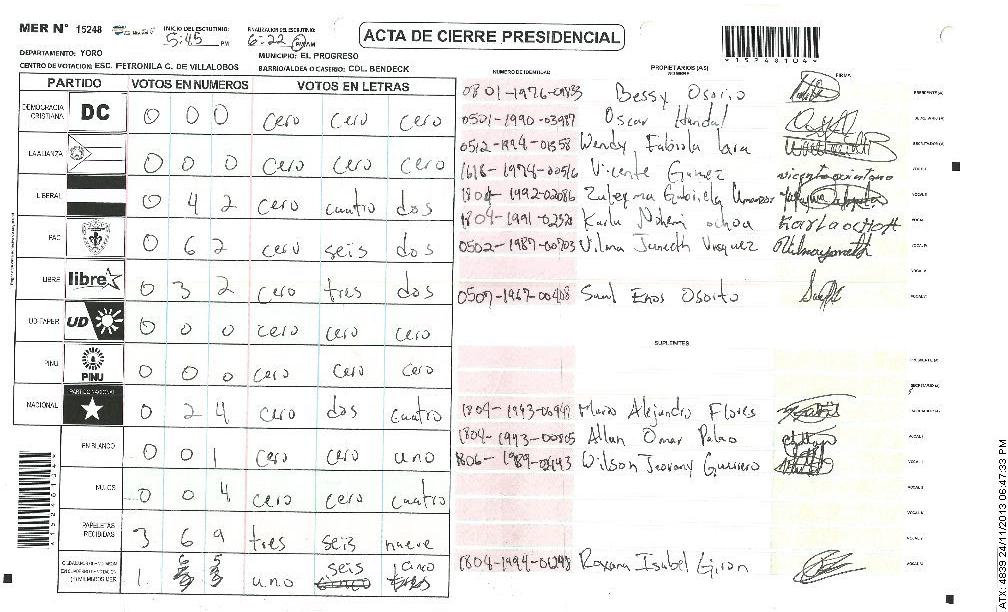 MER N° 15248 INICIO DEL ESCRUTINIO: 5:45 PM FINALIZACION DEL ESCRUTINIO: 6:22 PM/AM
ACTA DE CIERRE PRESIDENCIAL
*15248104*
DEPARTAMENTO: YORO MUNICIPIO: EL PROGRESO
CENTRO DE VOTACION: ESC. FETRONILA C. DE VILLALOBOS BARRIO/ALDEA O CASERIO: COL. BENDECK
PARTIDO VOTOS EN NUMEROS VOTOS EN LETRAS
DEMOCRACIA CRISTIANA DC 0 0 0 cero cero cero
LA ALIANZA 0 0 0 cero cero cero
LIBERAL 0 4 2 cero cuatro dos
PAC 0 6 2 cero seis dos
LIBRE libre 0 3 2 cero tres dos
UD-FAPER UD 0 0 0 cero cero cero
PINU PINU 0 0 0 cero cero cero
NACIONAL PARTIDO NACIONAL 0 2 4 cero dos cuatro
EN BLANCO 0 0 1 cero cero uno
NULOS 0 0 4 cero cero cuatro
PAPELETAS RECIBIDAS 3 6 9 tres seis nueve
1 6 5 uno seis cinco
NUMERO DE IDENTIDAD PROPIETARIOS (AS) NOMBRE FIRMA
0801-1976- Bessy Osorio
0501-1990-03987 Oscar Handal
0512-1994-01358 Wendy Fabiola Lara
1618-1974-00516 Vicente Gomez
1804-1992-02086 Gabriela
1804-1991-02528 Karla Nohemi ochoa Karla ochoa
0502-1989-00703 Vilma Janeth Vasquez
0507-1967-00408 Saul Enos Osorto
SUPLENTES
1804-1993- Mario Alejandro Flores
1804-1993-00805 Allan Omar
1806-1989- Wilson Jeovany Guerrero
1804-1994- Roxana Isabel Giron
ATX: 4839 24/11/2013 06:47:33 PM